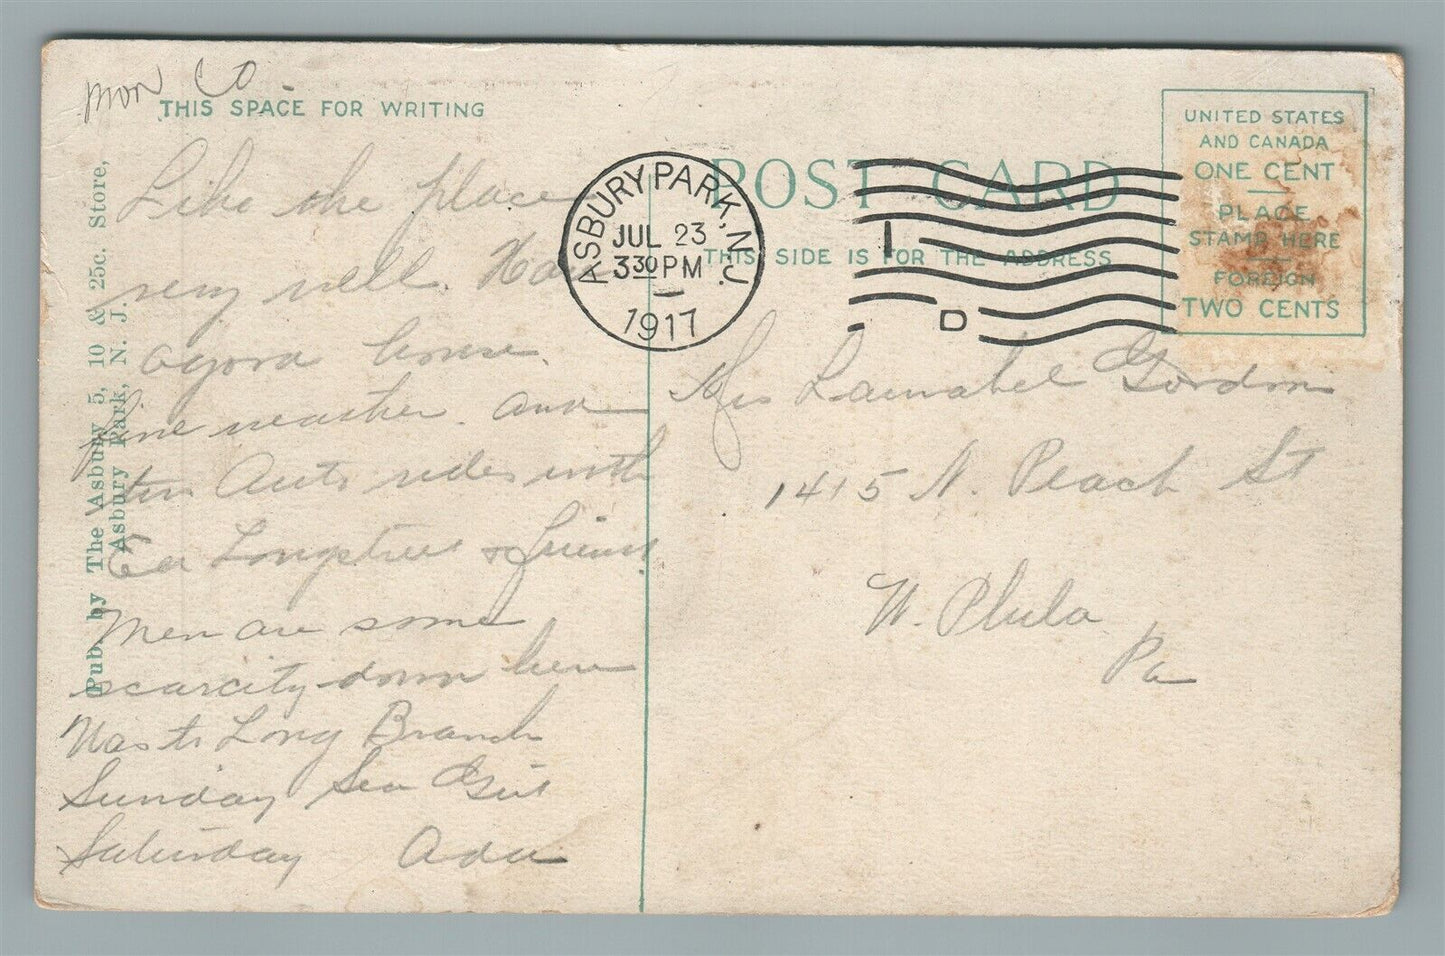 Mon Co.
THIS SPACE FOR WRITING
Like the place
very well. Have
a good house.
fine weather. and
two Auto rides with
Ed Longstreet & friend
Men are some
scarcity down here
Was to Long Branch
Sunday Sea Girt
Saturday Ada
Pub. by The Asbury 5, 10 & 25c. Store,
Asbury Park, N. J.
ASBURY PARK, N.J.
JUL 23
330 PM
1917
POST CARD
THIS SIDE IS FOR THE ADDRESS
UNITED STATES
AND CANADA
ONE CENT
PLACE
STAMP HERE
FOREIGN
TWO CENTS
Gordon
1415 N. Peach St
W. Phila
Pa